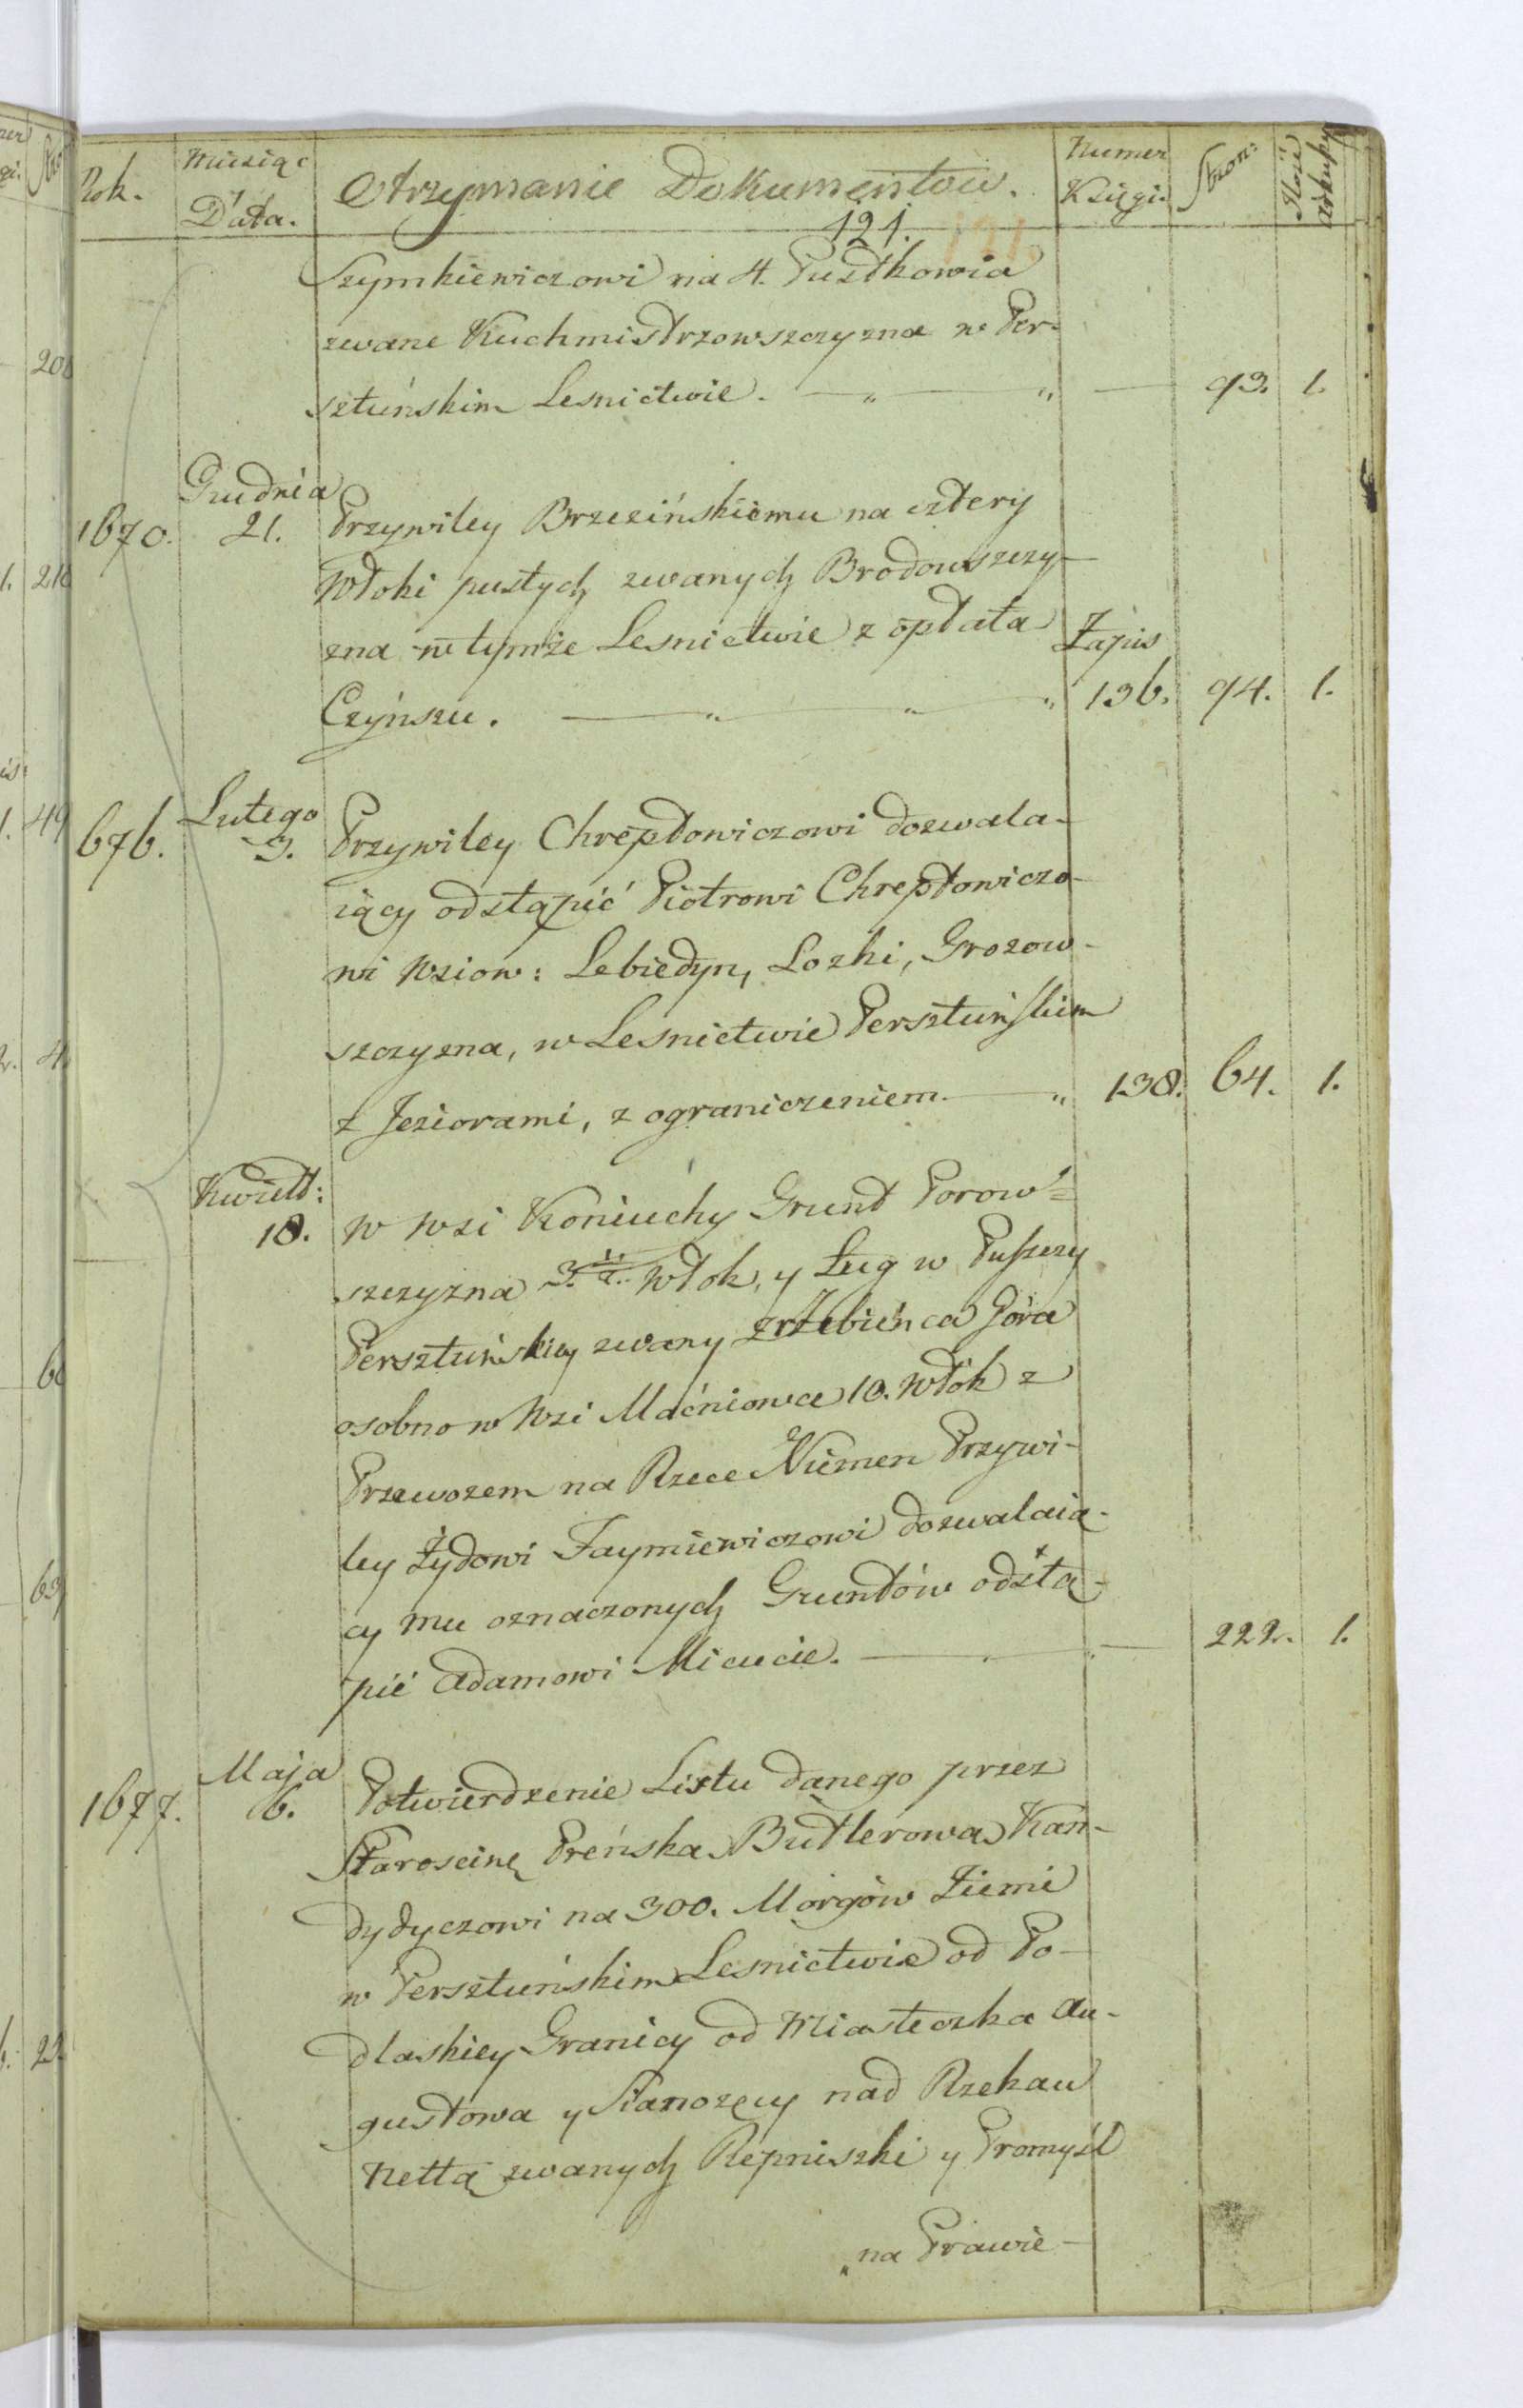 Rok. Miesiąc Data. Otrzymanie Dokumentow. Numer Księgi. Stron: Ilość arkuszy
121. 121.
Szymkiewiczowi na 4. Pustkowia
zwane Kuchmistrzowszczyzna w Per-
sztuńskim Lesnictwie. — „ — „ — 93. 1.
Grudnia
1670. 21. Przywiley Brzezińskiemu na cztery
Włoki pustych zwanych Brodowszczy-
zna w tymże Lesnictwie z opłata Zapis
Czyńszu. — „ „ „ 136. 94. 1.
Lutego
676. 3. Przywiley Chreptowiczowi dozwala-
iący odstąpić Piotrowi Chreptowiczo-
wi Wsiow: Lebiedyn, Lozki, Grozow-
szczyzna, w Lesnictwie Persztuńskim
z Jeziorami, z ograniczeniem. — „ 138. 64. 1.
Kwiett:
18. W Wsi Koniuchy Grunt Porow=
szczyzna 3. Włok, y Ług w Puszczy
Persztuńskiey zwany Zrzebieńca Góra
osobno w Wsi Maćniowce 10. Włok z
Przewozem na Rzece Niemen Przywi-
ley Żydowi Faymiewiczowi dozwalaią-
cy mu oznaczonych Gruntów odstą-
pić Adamowi Micucie. — 222. 1.
Maja
1677. 6. Potwierdzenie Listu danego przez
Starościnę Preńska Butlerowa Kan-
dydyczowi na 300. Morgów Ziemi
w Persztuńskim Lesnictwie od Po-
dlaskiey Granicy od Miasteczka Au-
gustowa y Sianożęcy nad Rzekau
Nettą zwanych Repniszki y Promysł
„na Prawie —
200
1. 216
1. 49
2. 4
60
63
23